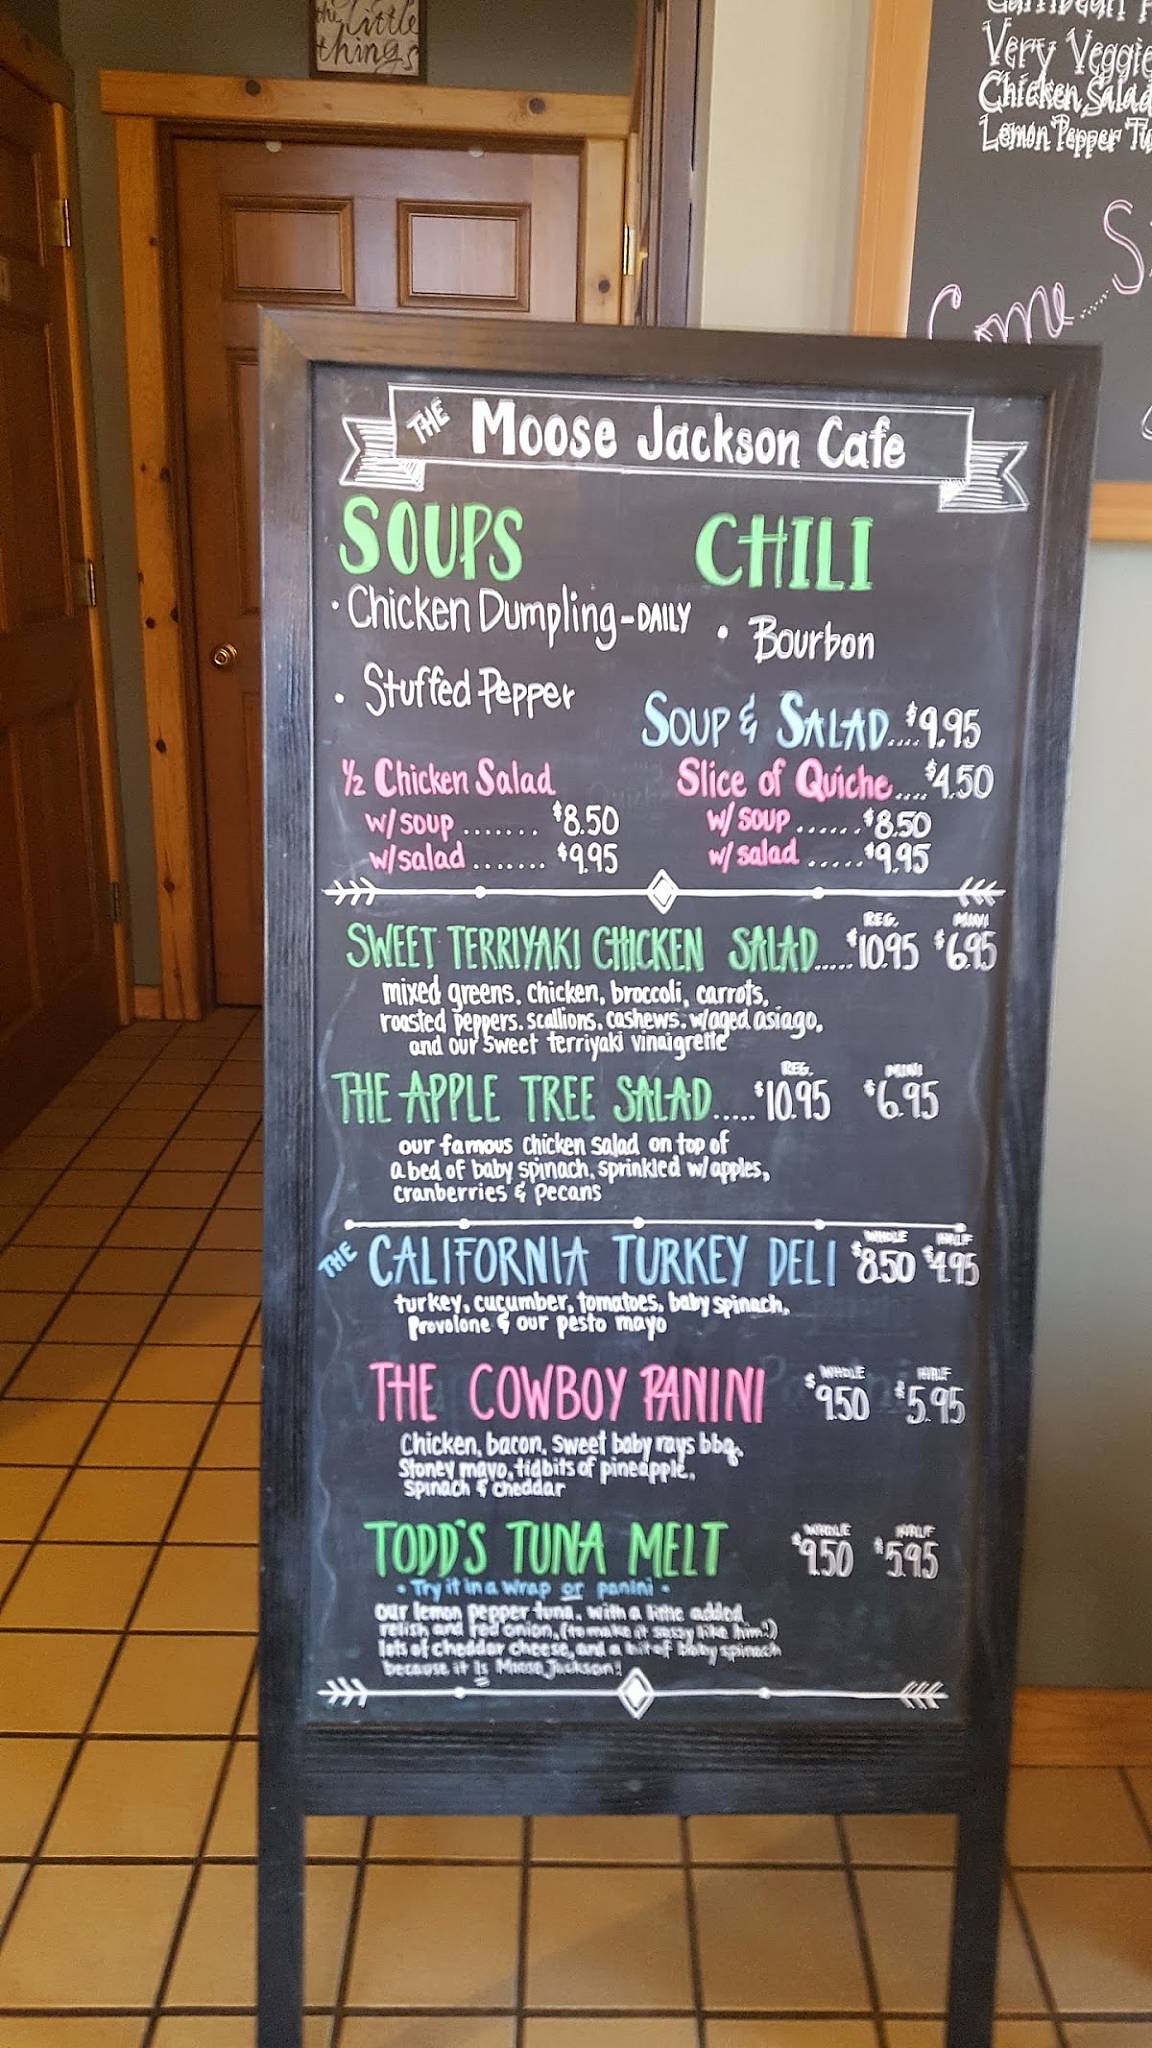 the little
things
Very Veggie
Chicken Salad
Lemon Pepper
Come
THE Moose Jackson Cafe
SOUPS
• Chicken Dumpling - DAILY
• Stuffed Pepper
CHILI
• Bourbon
SOUP & SALAD....$9.95
½ Chicken Salad
w/ soup ....... $8.50
w/ salad ....... $9.95
Slice of Quiche....$4.50
w/ soup ...... $8.50
w/ salad ..... $9.95
REG. MINI
SWEET TERRIYAKI CHICKEN SALAD.....$10.95 $6.95
mixed greens, chicken, broccoli, carrots,
roasted peppers, scallions, cashews, w/aged asiago,
and our sweet terriyaki vinaigrette
REG. MINI
THE APPLE TREE SALAD.....$10.95 $6.95
our famous chicken salad on top of
a bed of baby spinach, sprinkled w/apples,
cranberries & pecans
WHOLE HALF
THE CALIFORNIA TURKEY DELI $8.50 $4.95
turkey, cucumber, tomatoes, baby spinach,
provolone & our pesto mayo
WHOLE HALF
THE COWBOY PANINI $9.50 $5.95
Chicken, bacon, sweet baby rays bbq,
Stoney mayo, tidbits of pineapple,
spinach & cheddar
WHOLE HALF
TODD'S TUNA MELT $9.50 $5.95
• Try it in a wrap or panini •
our lemon pepper tuna, with a little added
relish and red onion, (to make it sassy like him!)
lots of cheddar cheese, and a bit of baby spinach
because it is Moose Jackson!